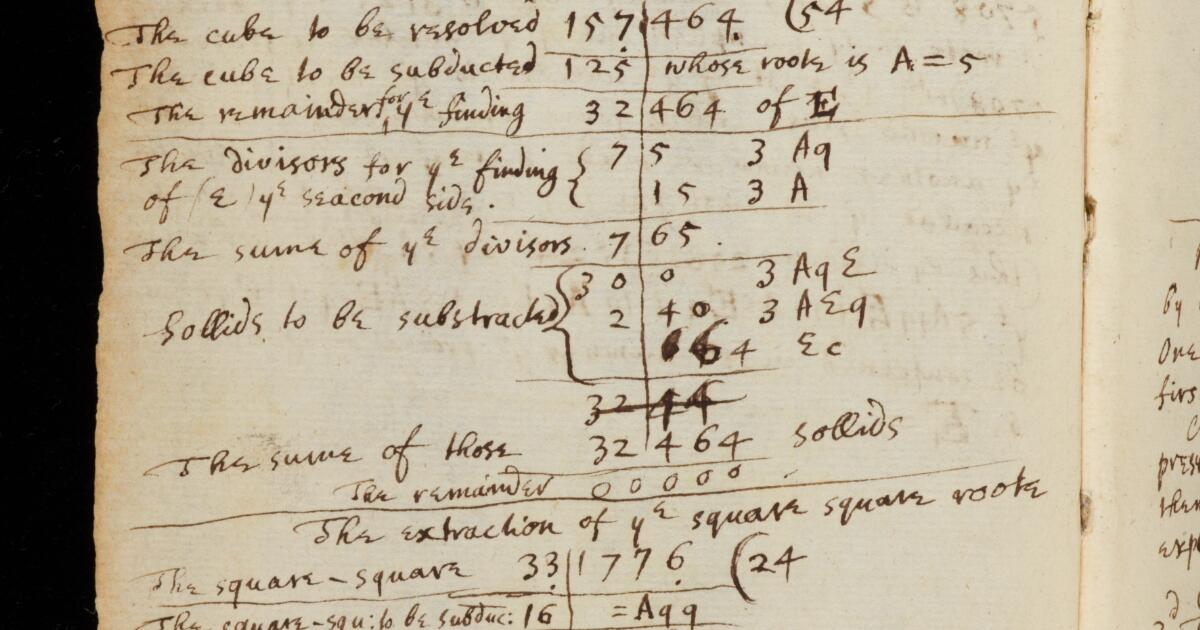 The cube to be resolved 157|464 (54
The cube to be subducted 125 | whose roote is A = 5
The remainder for yᵉ finding 32|464 of E
The divisors for yᵉ finding { 7|5 3 Aq
of (E) yᵉ seacond side. 15 3 A
The sume of yᵉ divisors. 7|65.
300 3 AqE
Sollids to be substracted { 2|40 3 AEq
64 Ec
32 44
The sume of those 32|464 sollids
The remainder 00000
The extraction of yᵉ square square roote
The square-square 33|1776 (24
The square-squ: to be subduc: 16 | = Aqq
by
One
firs
pres
then
exp